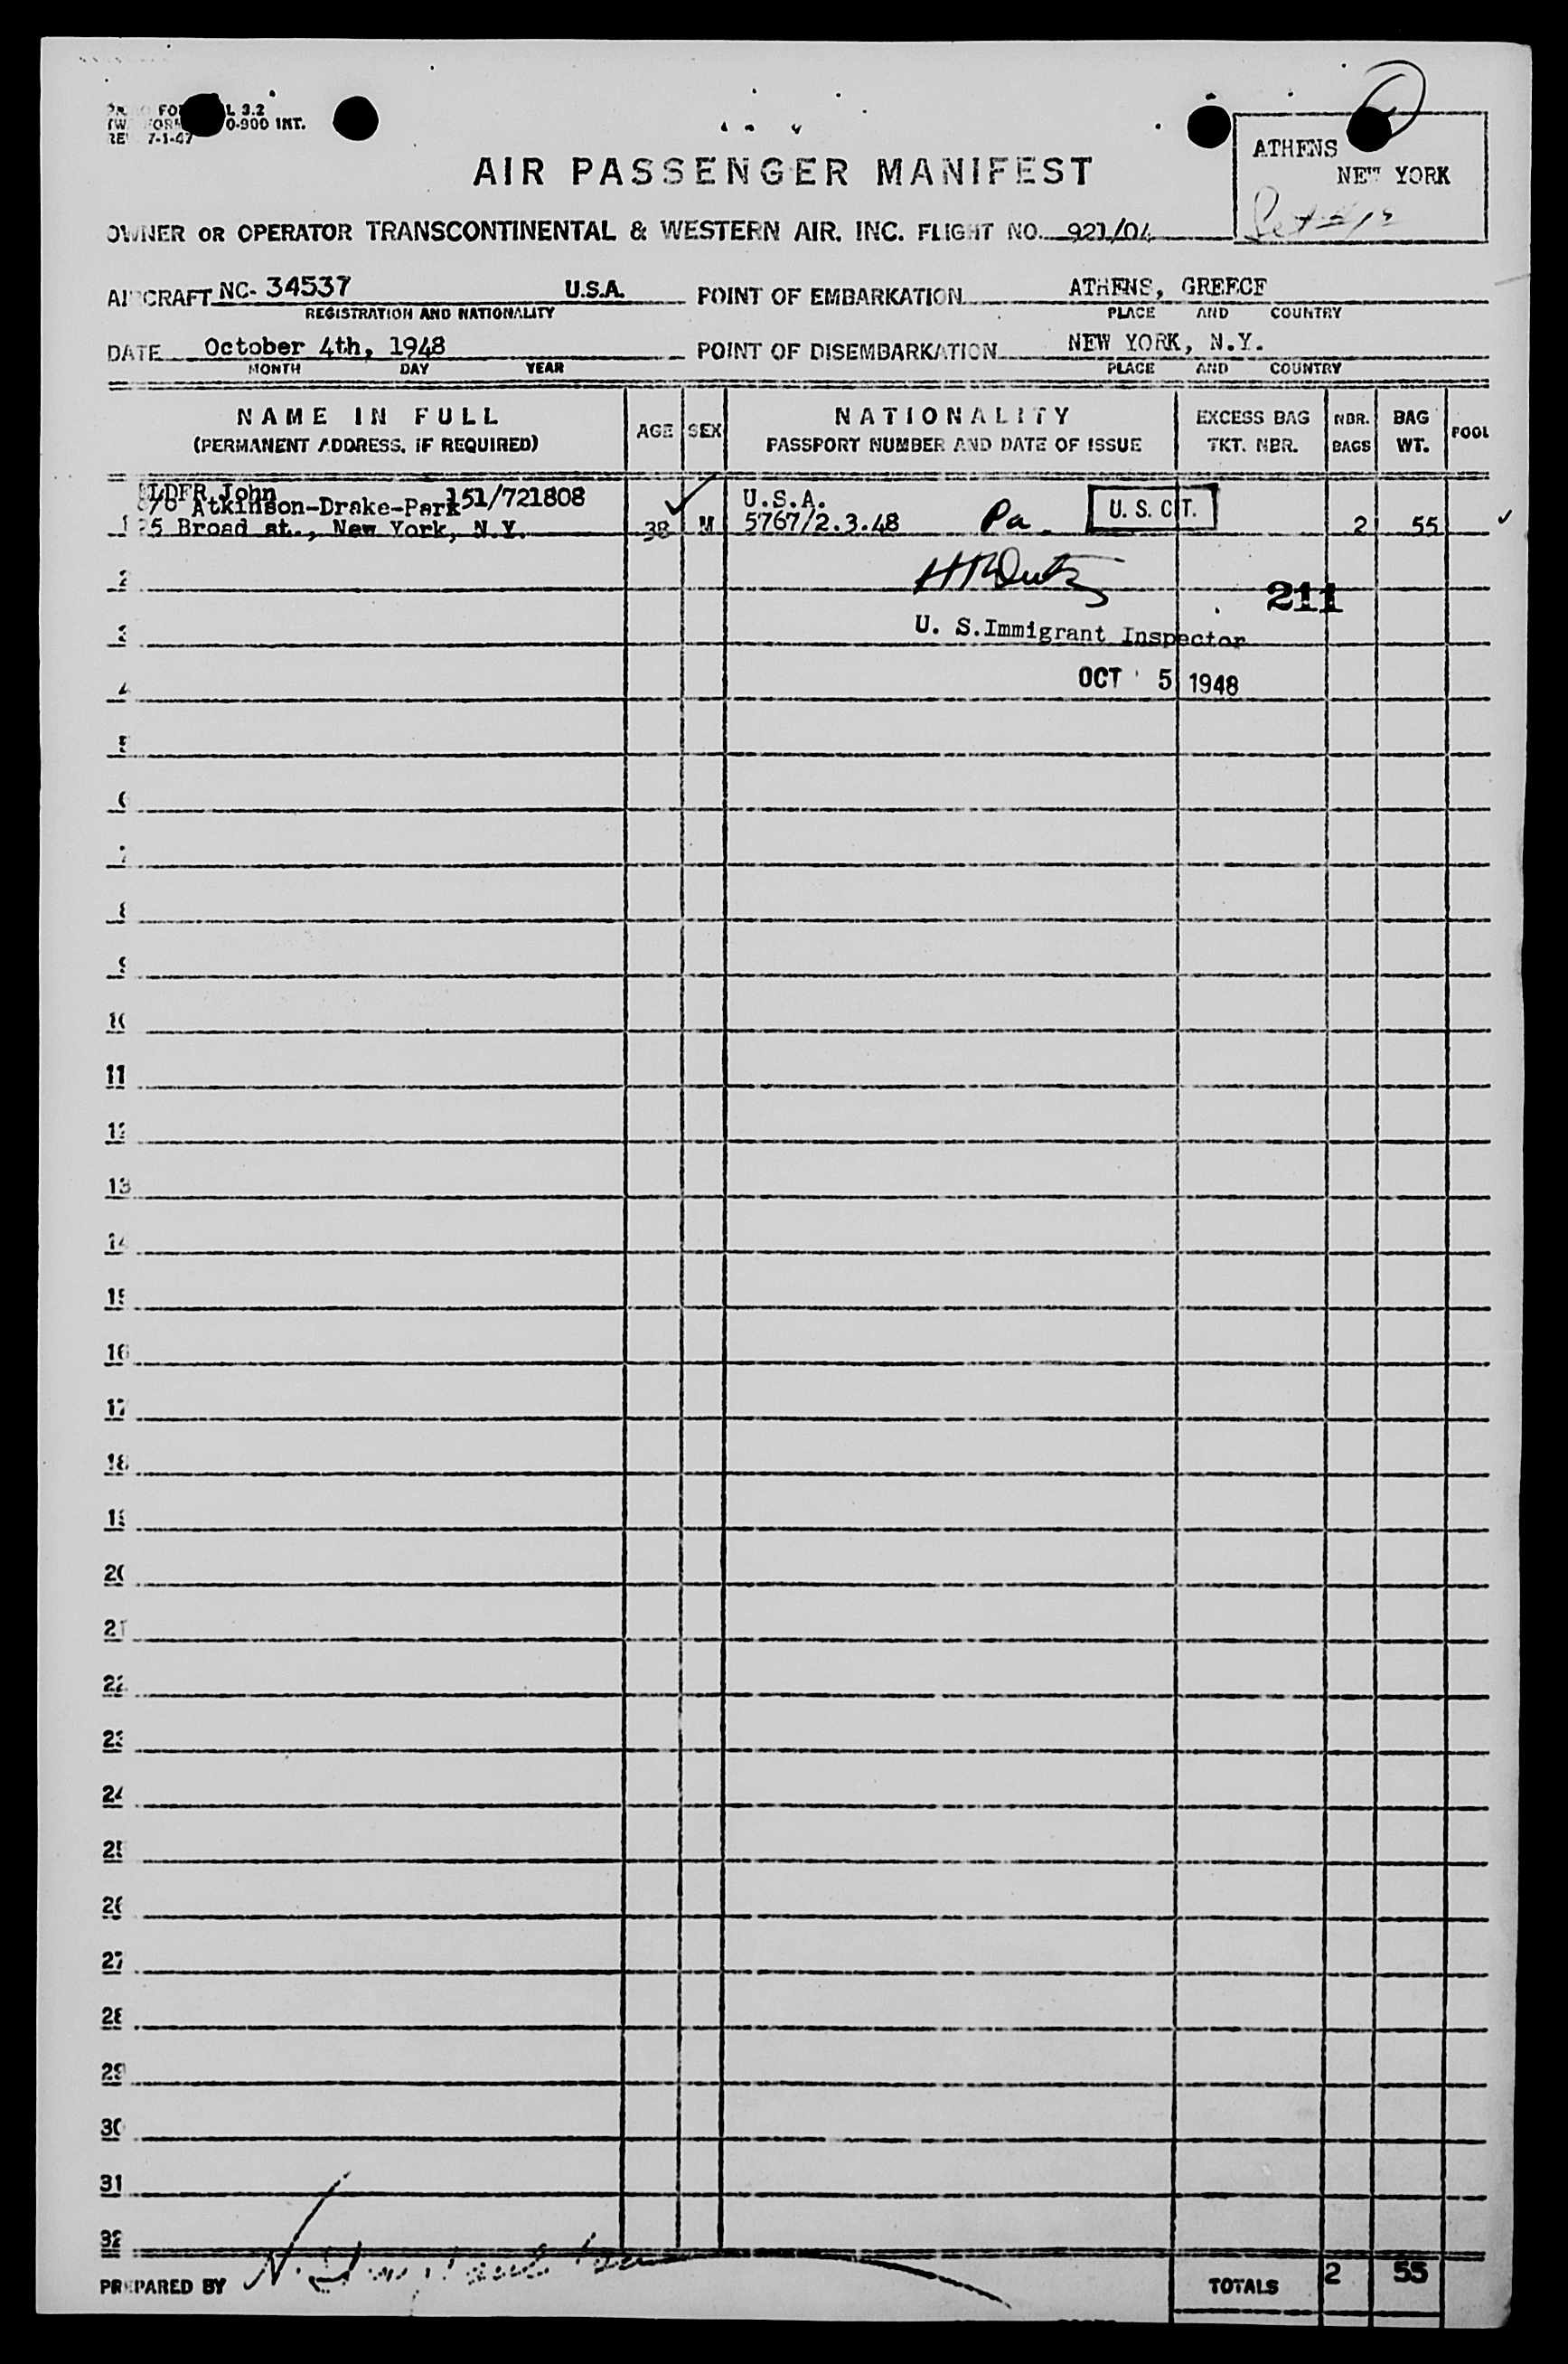 L 3.2
0-900 INT.
7-1-47
ATHENS
NEW YORK
AIR PASSENGER MANIFEST
OWNER OR OPERATOR TRANSCONTINENTAL & WESTERN AIR. INC. FLIGHT NO. 921/04
AIRCRAFT NC- 34537 U.S.A. POINT OF EMBARKATION ATHENS, GREECE
REGISTRATION AND NATIONALITY PLACE AND COUNTRY
DATE October 4th, 1948 POINT OF DISEMBARKATION NEW YORK, N.Y.
MONTH DAY YEAR PLACE AND COUNTRY
NAME IN FULL AGE SEX NATIONALITY EXCESS BAG NBR. BAG POOL
(PERMANENT ADDRESS. IF REQUIRED) PASSPORT NUMBER AND DATE OF ISSUE TKT. NBR. BAGS WT.
ELDER John 151/721808 U.S.A.
c/o Atkinson-Drake-Park
1 25 Broad st., New York, N.Y. 38 M 5767/2.3.48 Pa. U. S. CIT. 2 55
2 211
3 U. S.Immigrant Inspector
4 OCT 5 1948
5
6
7
8
9
10
11
12
13
14
15
16
17
18
19
20
21
22
23
24
25
26
27
28
29
30
31
32
PREPARED BY TOTALS 2 55